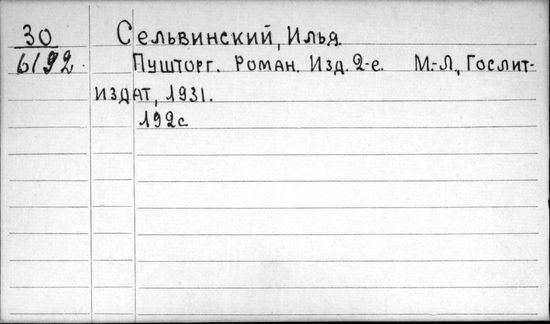 30 Сельвинский, Илья
6192. Пушторг. Роман. Изд. 2-е. М.-Л., Гослит-
издат, 1931.
192с